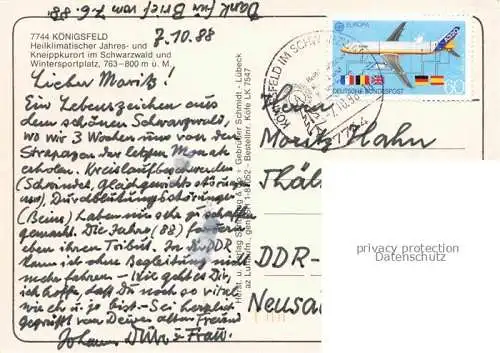 Dank für Brief vom 7.6.88
7744 KÖNIGSFELD
Heilklimatischer Jahres- und
Kneippkurort im Schwarzwald und
Wintersportplatz, 763–800 m ü. M.
7.10.88
Lieber Moritz!
Ein Lebenszeichen aus
dem schönen Schwarzwald,
wo wir 3 Wochen uns von den
Strapazen der letzten Monate
erholen. Kreislaufbeschwerden
(Schwindel, Gleichgewichtsstörungen
usw), Durchblutungsstörungen
(Beine) haben mir sehr zu schaffen
gemacht. Die Jahre (88) fordern
eben ihren Tribut. In die DDR
kann ich ohne Begleitung nicht
mehr fahren – Wie geht es Dir,
ich hoffe, daß Du noch so vital
wie eh u je bist. – Sei herzlich
gegrüßt von Deinem alten Freund
Johannes u. Frau.
Herst. u. Verlag Schöning & Co + Gebrüder Schmidt - Lübeck
az Luftaufn. gen. Bestellnr. Köfe LK 7547
EUROPA
DEUTSCHE BUNDESPOST
60
KÖNIGSFELD IM SCHWARZWALD
7744
Herrn
Moritz Hahn
Thäl
DDR-
Neusa
privacy protection
Datenschutz